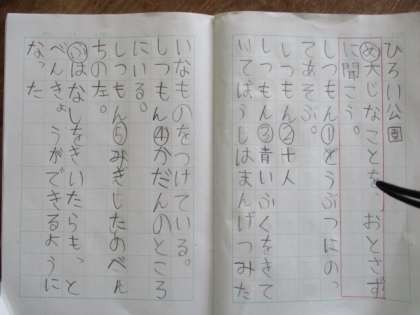 ひろい公園
め大じなことを、おとさず
に聞こう。
しつもん①どうぶつにの、
てあそぶ。
しつもん②十人
しつもん③青いふくをきて
いてぼうしはまんげつみた
いなものをつけている。
しつもん④かだんのところ
にいる。
しつもん⑤みぎしたのべん
ちの左。
ふはなしをきいたらも、と
べんきょうができるように
なった